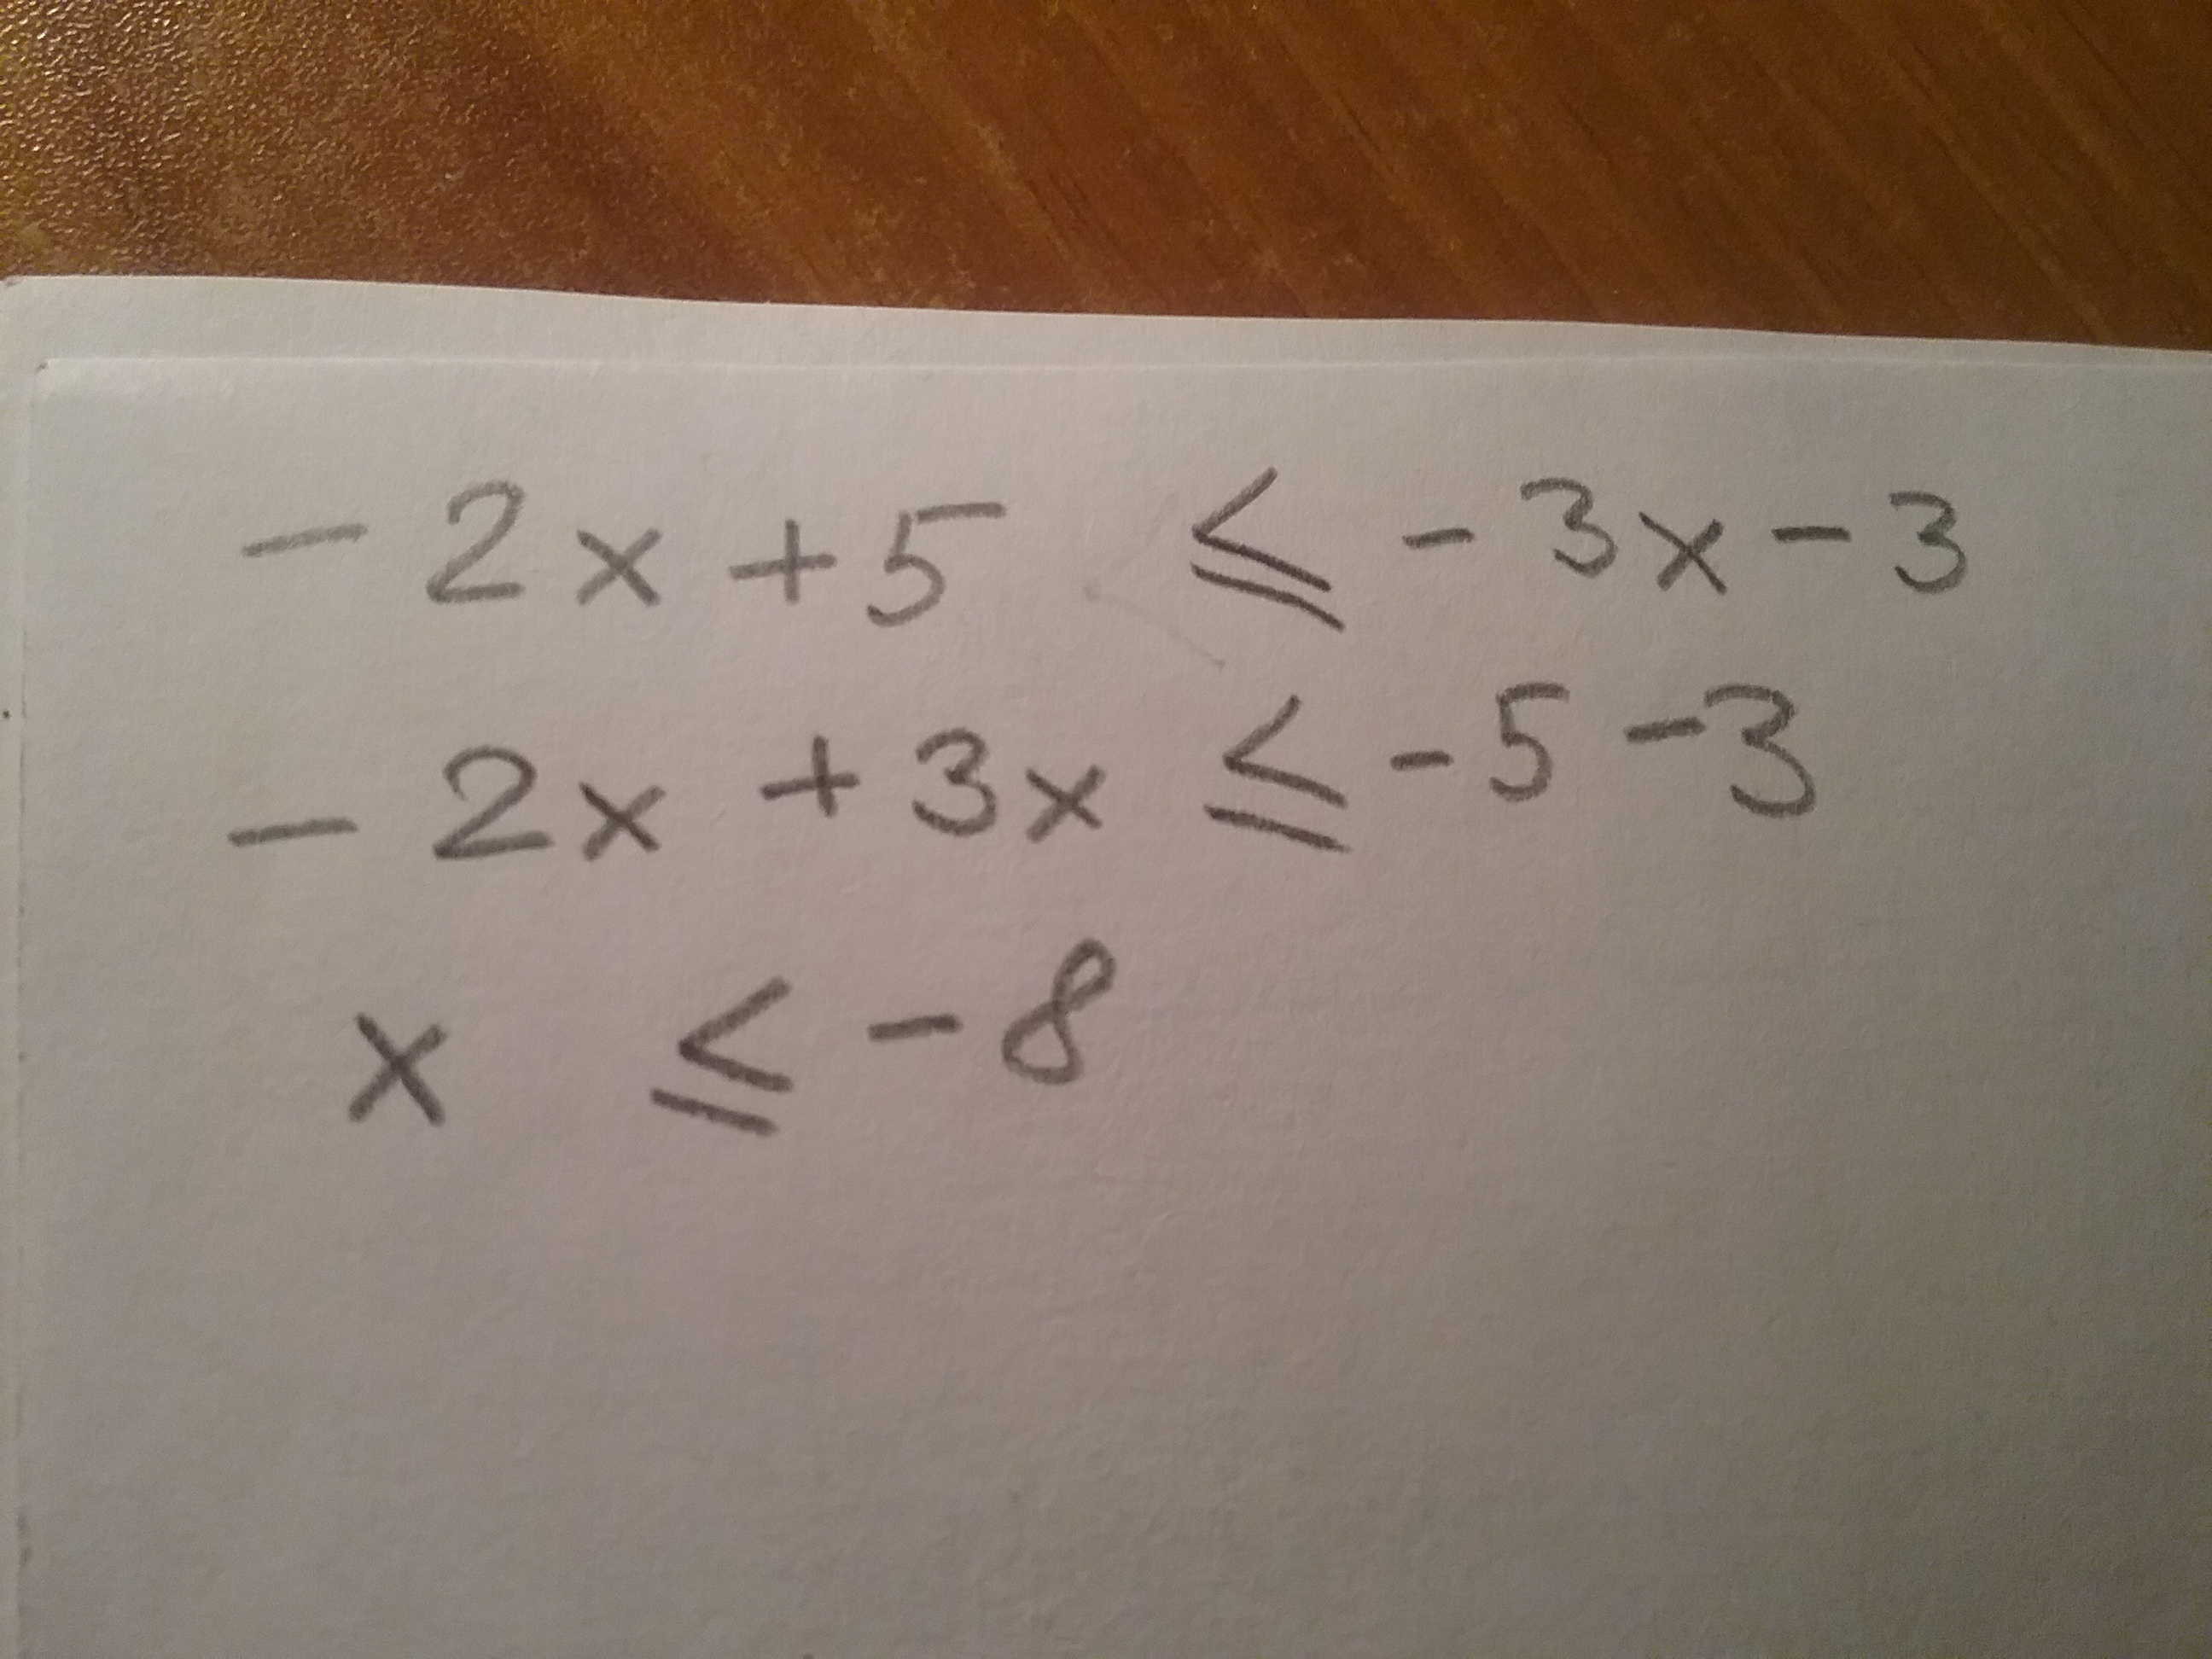 - 2x + 5 ≤ - 3x - 3
- 2x + 3x ≤ - 5 - 3
x ≤ - 8